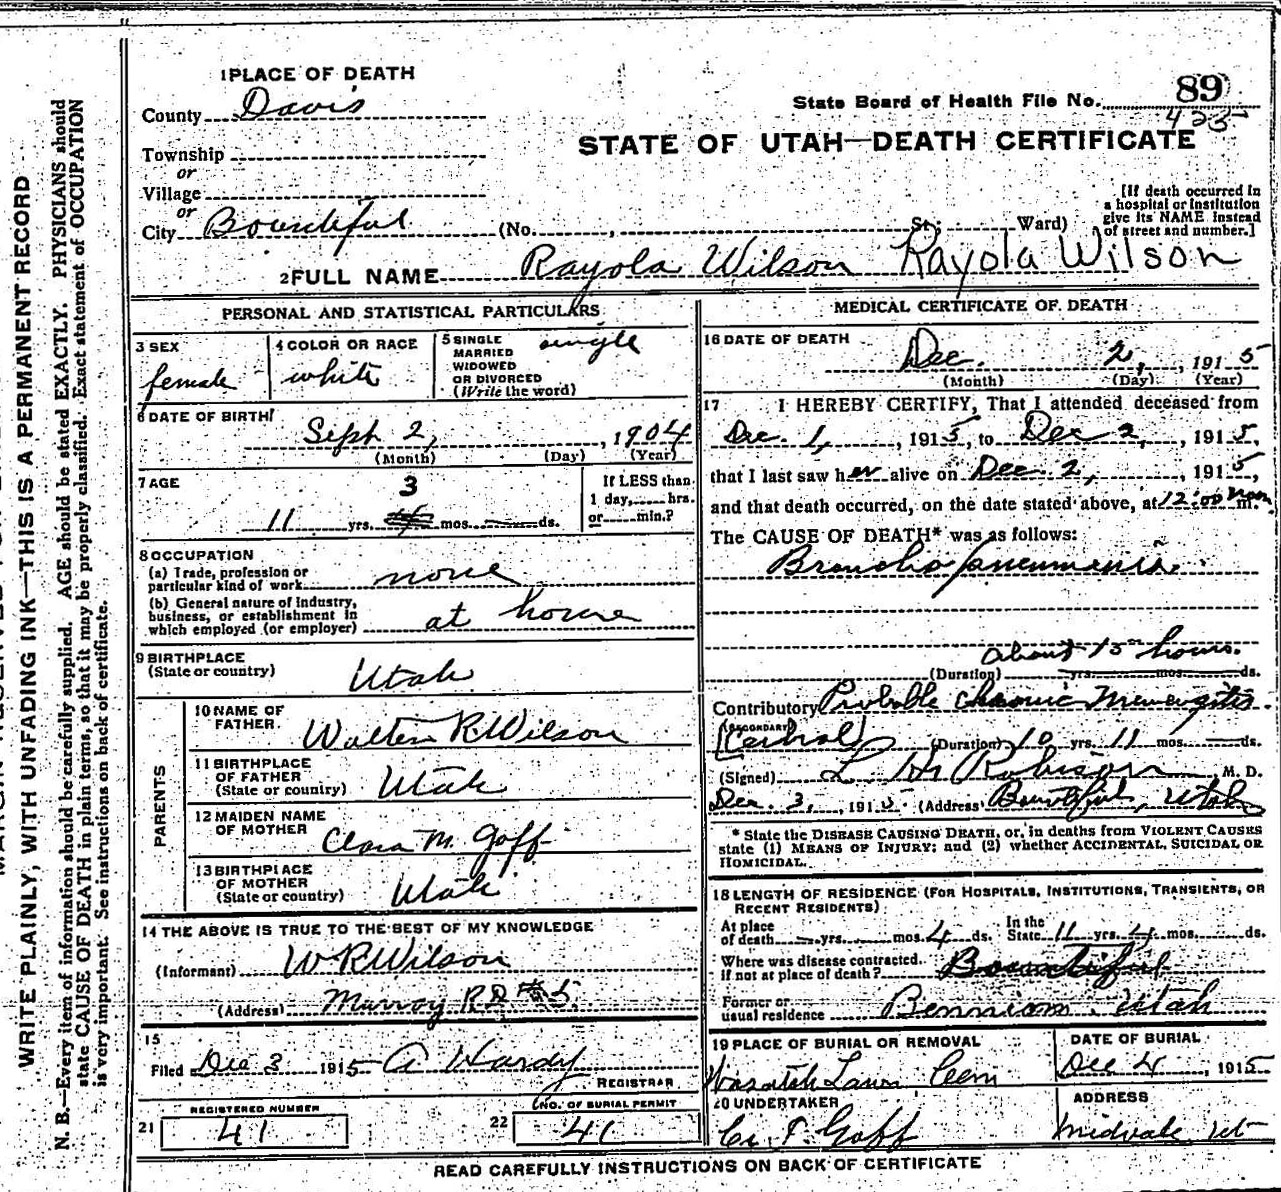 1 PLACE OF DEATH
County Davis
Township
or
Village
or
City Bountiful (No. , St.; Ward)
State Board of Health File No. 89
425
STATE OF UTAH—DEATH CERTIFICATE
[If death occurred in
a hospital or institution
give its NAME instead
of street and number.]
2 FULL NAME Rayola Wilson Rayola Wilson
PERSONAL AND STATISTICAL PARTICULARS
3 SEX
female
4 COLOR OR RACE
white
5 SINGLE
MARRIED
WIDOWED
OR DIVORCED
(Write the word)
single
6 DATE OF BIRTH
Sept 2, , 1904
(Month) (Day) (Year)
7 AGE
3
11 yrs. 4 mos. ds.
If LESS than
1 day, hrs.
or min.?
8 OCCUPATION
(a) Trade, profession or
particular kind of work none
(b) General nature of industry,
business, or establishment in
which employed (or employer) at home
9 BIRTHPLACE
(State or country) Utah
PARENTS
10 NAME OF
FATHER Walter R. Wilson
11 BIRTHPLACE
OF FATHER
(State or country) Utah
12 MAIDEN NAME
OF MOTHER Clara M. Goff
13 BIRTHPLACE
OF MOTHER
(State or country) Utah
14 THE ABOVE IS TRUE TO THE BEST OF MY KNOWLEDGE
(Informant) W R Wilson
(Address) Murray R.D. #5
15
Filed Dec 3 1915 A Hardy
REGISTRAR
REGISTERED NUMBER
21 41
NO. OF BURIAL PERMIT
22 41
MEDICAL CERTIFICATE OF DEATH
16 DATE OF DEATH
Dec. 2, , 1915
(Month) (Day) (Year)
17 I HEREBY CERTIFY, That I attended deceased from
Dec. 1, , 1915, to Dec 2, , 1915,
that I last saw her alive on Dec. 2, , 1915,
and that death occurred, on the date stated above, at 12:00 Noon m.
The CAUSE OF DEATH* was as follows:
Broncho pneumonia
about 15 hours.
(Duration) yrs. mos. ds.
Contributory Probable Chronic Meningitis
(SECONDARY)
(Duration) 10 yrs. 11 mos. ds.
(Signed) L. H. Robison, M. D.
Dec. 3, 1915. (Address) Bountiful, Utah
* State the DISEASE CAUSING DEATH, or, in deaths from VIOLENT CAUSES
state (1) MEANS OF INJURY; and (2) whether ACCIDENTAL, SUICIDAL OR
HOMICIDAL.
18 LENGTH OF RESIDENCE (FOR HOSPITALS, INSTITUTIONS, TRANSIENTS, OR
RECENT RESIDENTS)
At place In the
of death yrs. mos. 4 ds. State 11 yrs. 4 mos. ds.
Where was disease contracted.
if not at place of death? Bountiful
Former or
usual residence Bennion, Utah
19 PLACE OF BURIAL OR REMOVAL
Wasatch Lawn Cem
DATE OF BURIAL
Dec 4, 1915
20 UNDERTAKER
Goff
ADDRESS
Midvale, Ut
READ CAREFULLY INSTRUCTIONS ON BACK OF CERTIFICATE
WRITE PLAINLY, WITH UNFADING INK—THIS IS A PERMANENT RECORD
N. B.—Every item of information should be carefully supplied. AGE should be stated EXACTLY. PHYSICIANS should
state CAUSE OF DEATH in plain terms, so that it may be properly classified. Exact statement of OCCUPATION
is very important. See instructions on back of certificate.